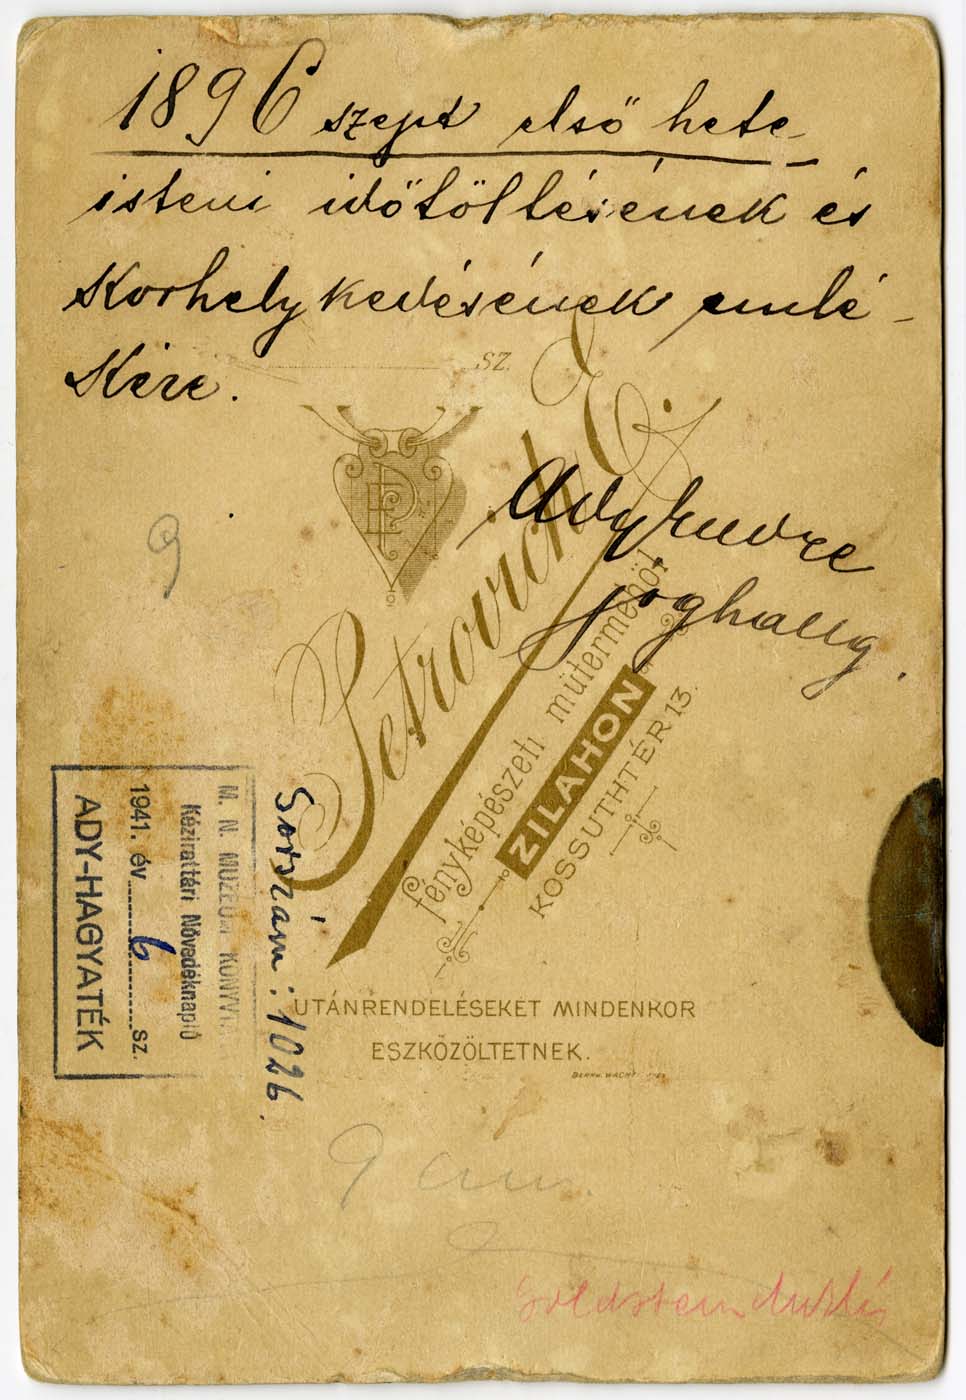 1896 szept első hete
isteni időtöltésének és
Korhelykedésének emlé-
Kére.
SZ.
PE
Petrovich E.
Ady Endre
joghallg.
fényképészeti műterméből
ZILAHON
KOSSUTHTÉR 13.
9
M. N. MÚZEUM KÖNYVT.
Kézirattári Növedéknapló
1941. év 6 sz.
ADY-HAGYATÉK
Sorszám: 1026.
UTÁNRENDELÉSEKET MINDENKOR
ESZKÖZÖLTETNEK.
BERNH. WACHTL
9 cm.
Goldstein